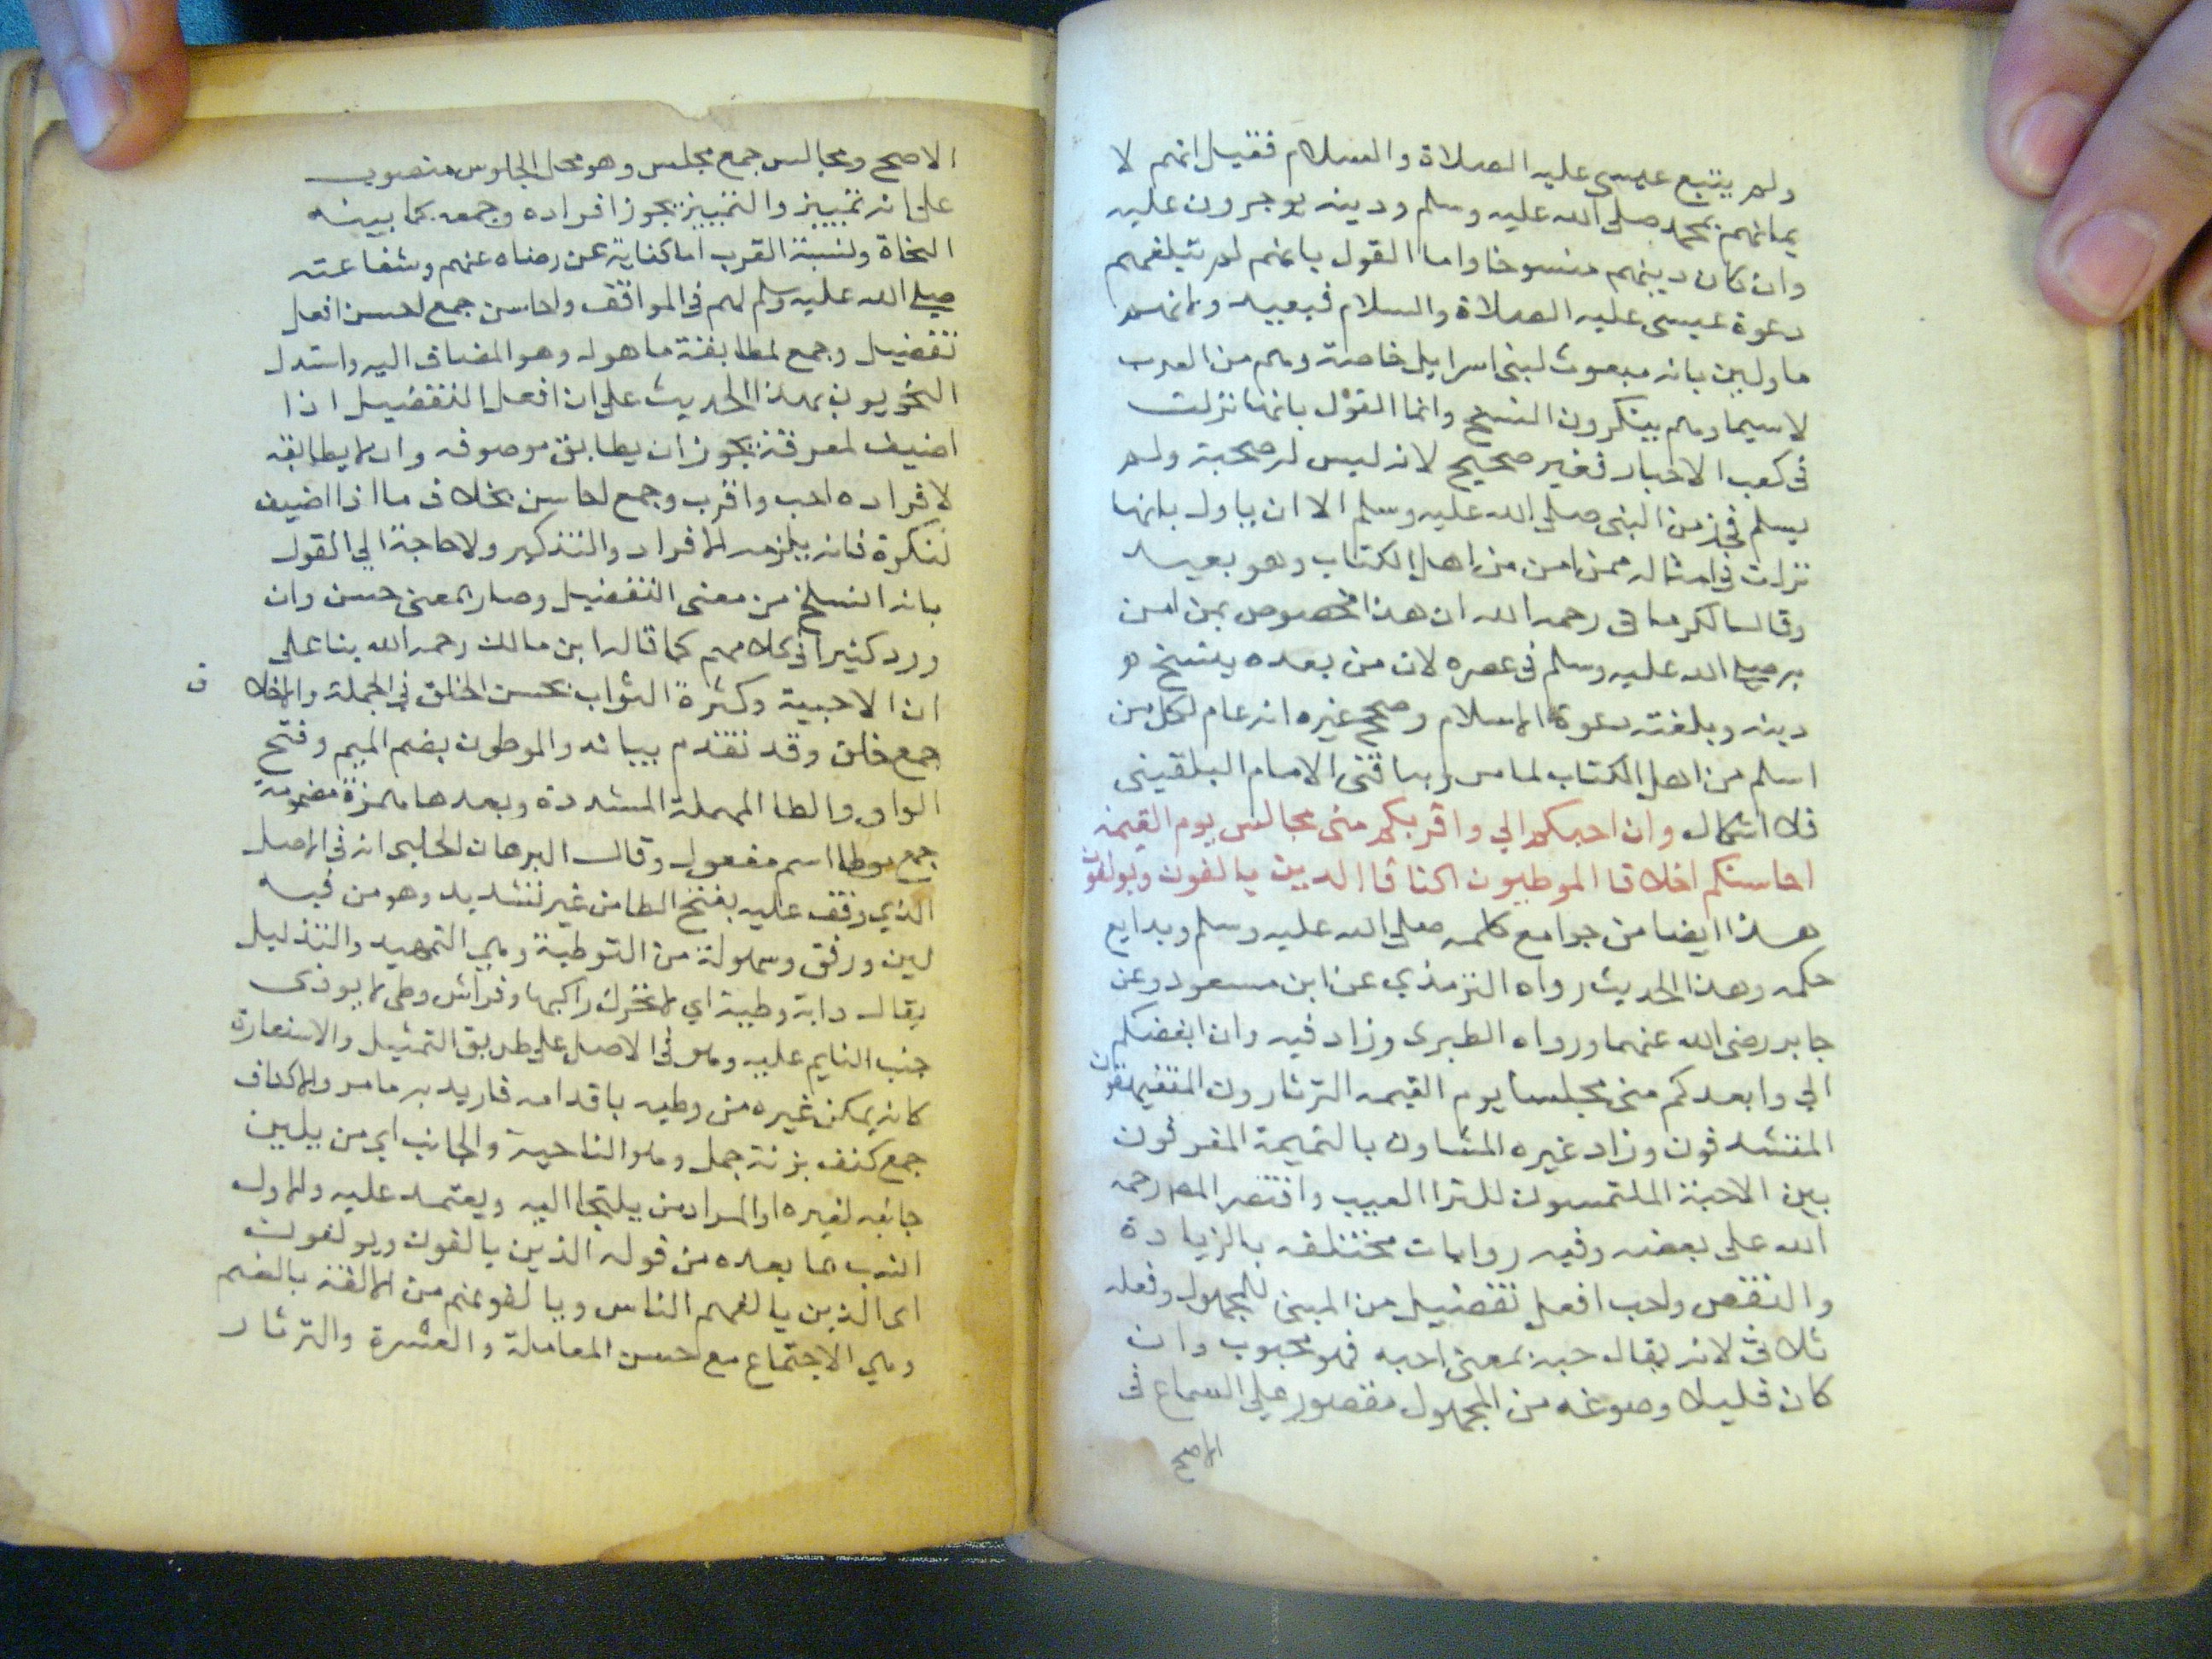 ولم يتبع عيسى عليه الصلاة والسلام فقيل انهم لا
يمانهم بمحمد صلى الله عليه وسلم ودينه يوجرون عليه
وان كان دينهم منسوخا واما القول بانهم لم تبلغهم
دعوة عيسى عليه الصلاة والسلام فبعيد وانهم
ماولين بانه مبعوث لبني اسرايل خاصة وهم من العرب
لاسيما وهم ينكرون النسخ وانما القول بانها نزلت
في كعب الاحبار فغير صحيح لانه ليس له صحبة ولم
يسلم في زمن النبي صلى الله عليه وسلم الا ان ياول بانها
نزلت في امثاله ممن امن من اهل الكتاب وهو بعيد
وقال الكرماني رحمه الله ان هذا مخصوص بمن امن
به صلى الله عليه وسلم في عصره لان من بعده ينسخ هو
دينه وبلغته دعوة الاسلام وصحح غيره انه عام لكل من
اسلم من اهل الكتاب لما مر وبه افتى الامام البلقيني
فلا اشكال وان احبكم الي واقربكم مني مجالس يوم القيمة
احاسنكم اخلاقا الموطيون اكنافا الذين يالفون ويولفون
هذا ايضا من جوامع كلمه صلى الله عليه وسلم وبدايع
حكمه وهذا الحديث رواه الترمذي عن ابن مسعود وعن
جابر رضي الله عنهما ورواه الطبري وزاد فيه وان ابغضكم
الي وابعدكم مني مجلسا يوم القيمه الثرثارون المتفيهقون
المتشدقون وزاد غيره المشاون بالنميمة المفرقون
بين الاحبة الملتمسون للبرا العيب واقتصر المص رحمه
الله على بعضه وفيه روايات مختلفه بالزيادة
والنقص واحب افعل تفضيل من المبني للمجهول وفعله
ثلاثي لانه يقال حبه بمعنى احبه فهو محبوب وان
كان قليلا وصوغه من المجهول مقصور على السماع في
الاصح
الاصح ومجالس جمع مجلس وهو محل الجلوس منصوب
على انه تمييز والتمييز يجوز افراده وجمعه كما بينه
النحاة ونسبة القرب اما كناية عن رضاه عنهم وشفاعته
صلى الله عليه وسلم لهم في المواقف واحاسن جمع احسن افعل
تفضيل وجمع لمطابقة ما هو له وهو المضاف اليه واستدل
النحويون بهذا الحديث على ان افعل التفضيل اذا
اضيف لمعرفة يجوز ان يطابق موصوفه وان لا يطابقه
لافراده احب واقرب وجمع احاسن بخلاف ما اذا اضيف
لنكرة فانه يلزمه الافراد والتذكير ولا حاجة الي القول
بانه انسلخ من معنى التفضيل وصار بمعنى حسن وان
ورد كثيرا في كلامهم كما قاله ابن مالك رحمه الله بنا على
ان الاحبية وكثرة الثواب بحسن الخلق في الجملة والاخلا ق
جمع خلق وقد تقدم بيانه والموطون بضم الميم وفتح
الواو والطا المهملة المشددة وبعدها همزة مضمومة
جمع موطا اسم مفعول وقال البرهان الحلبي انه في الاصل
الذي وقف عليه بفتح الطا من غير تشديد وهو من فيه
لين ورفق وسهولة من التوطية وهي التمهيد والتذليل
يقال دابة وطية اي لا تحرك راكبها وفراش وطي لا يوذى
جنب النايم عليه وهو في الاصل على طريق التمثيل والاستعارة
كانه يمكن غيره من وطيه باقدامه فاريد به ما مر والاكناف
جمع كنف بزنة جمل وهو الناحية والجانب اي من يلين
جانبه لغيره او المراد من يلتجا اليه ويعتمد عليه والاول
انسب بما بعده من قوله الذين يالفون ويولفون
اى الذين يالفهم الناس ويالفونهم من الالفة بالضم
وهي الاجتماع مع حسن المعاملة والعشرة والثرثار